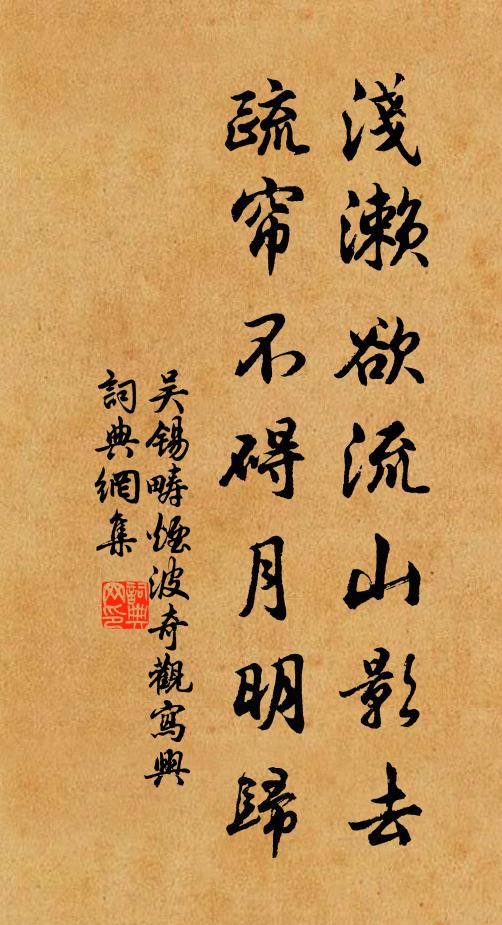 淺瀨欲流山影去
疏帘不碍月明歸
吴锡畴煙波奇觀寫興
詞典網集
詞典网印